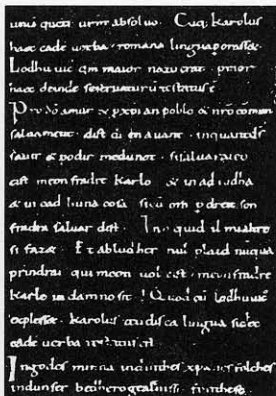 unicuiq; urm absoluo. Cuq; karolus
haec eade uerba romana lingua porasset.
Lodhuuic qm maior natu erat prior
haec deinde se seruaturu testatus e
Pro dõ amur & pxpian poblo & nro comun
saluament. dist di en auant. inquantds
sauir & podir medunat. sisaluaraieo
cist meon fradre karlo & in ad iudha
& in cad huna cosa. sicu om p dreit son
fradra saluar dist. Ino quid il mialtre
si faz&. Et abludher nul plaid nuqua
prindrai qui meon uol cist meon fradre
karle in damno sit. Quod cu lodhuuic
explesset. karolus teudisca lingua sic ec
eade uerba testatus e
Ingodes minna indinthes xpanes folches
ind unser bedhero gealtnissi